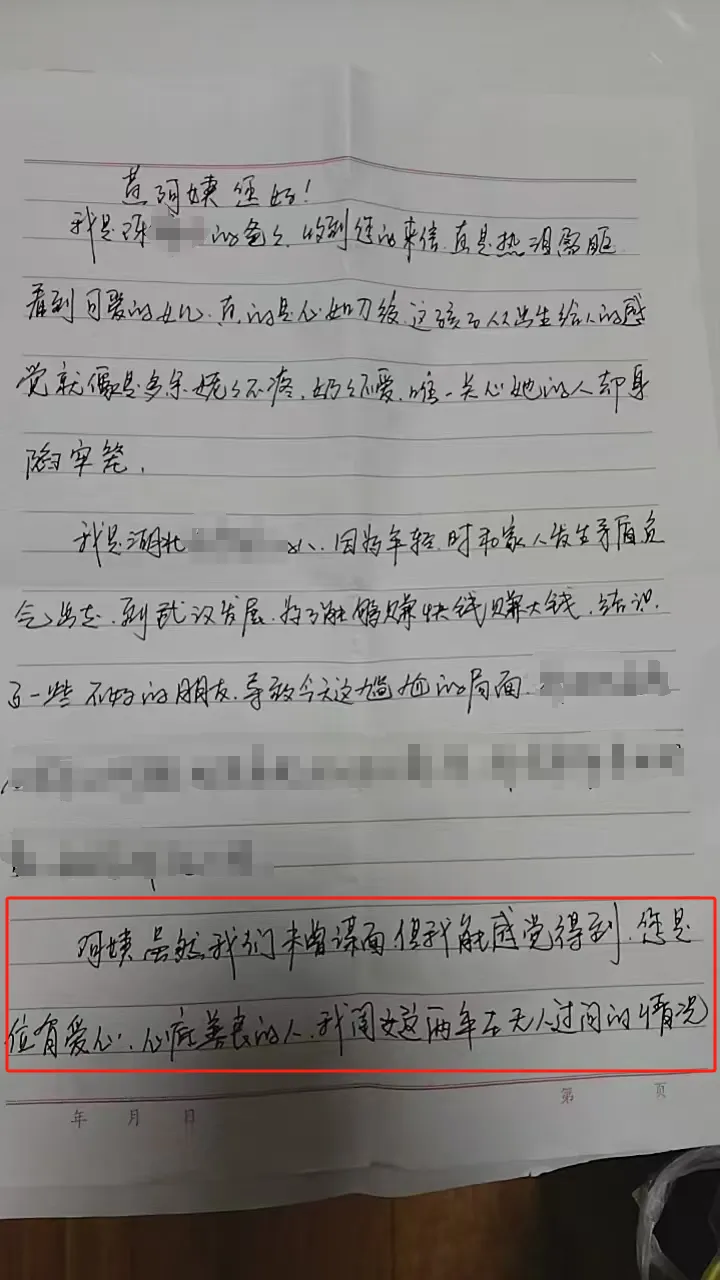 黄阿姨您好！
我是陈 的爸爸，收到您的来信，真是热泪盈眶
看到可爱的女儿，真的是心如刀绞，这孩子从出生给人的感
觉就像是多余，姥姥不疼，奶奶不爱，唯一关心她的人却身
陷牢笼，
我是湖北 人，因为年轻时和家人发生矛盾负
气出走，到武汉发展，为了能够赚快钱，赚大钱，结识
了一些不好的朋友，导致今天这尴尬的局面
阿姨虽然我们未曾谋面，但我能感觉得到，您是
位有爱心，心底善良的人，我闺女这两年在无人过问的情况
年 月 日 第 页